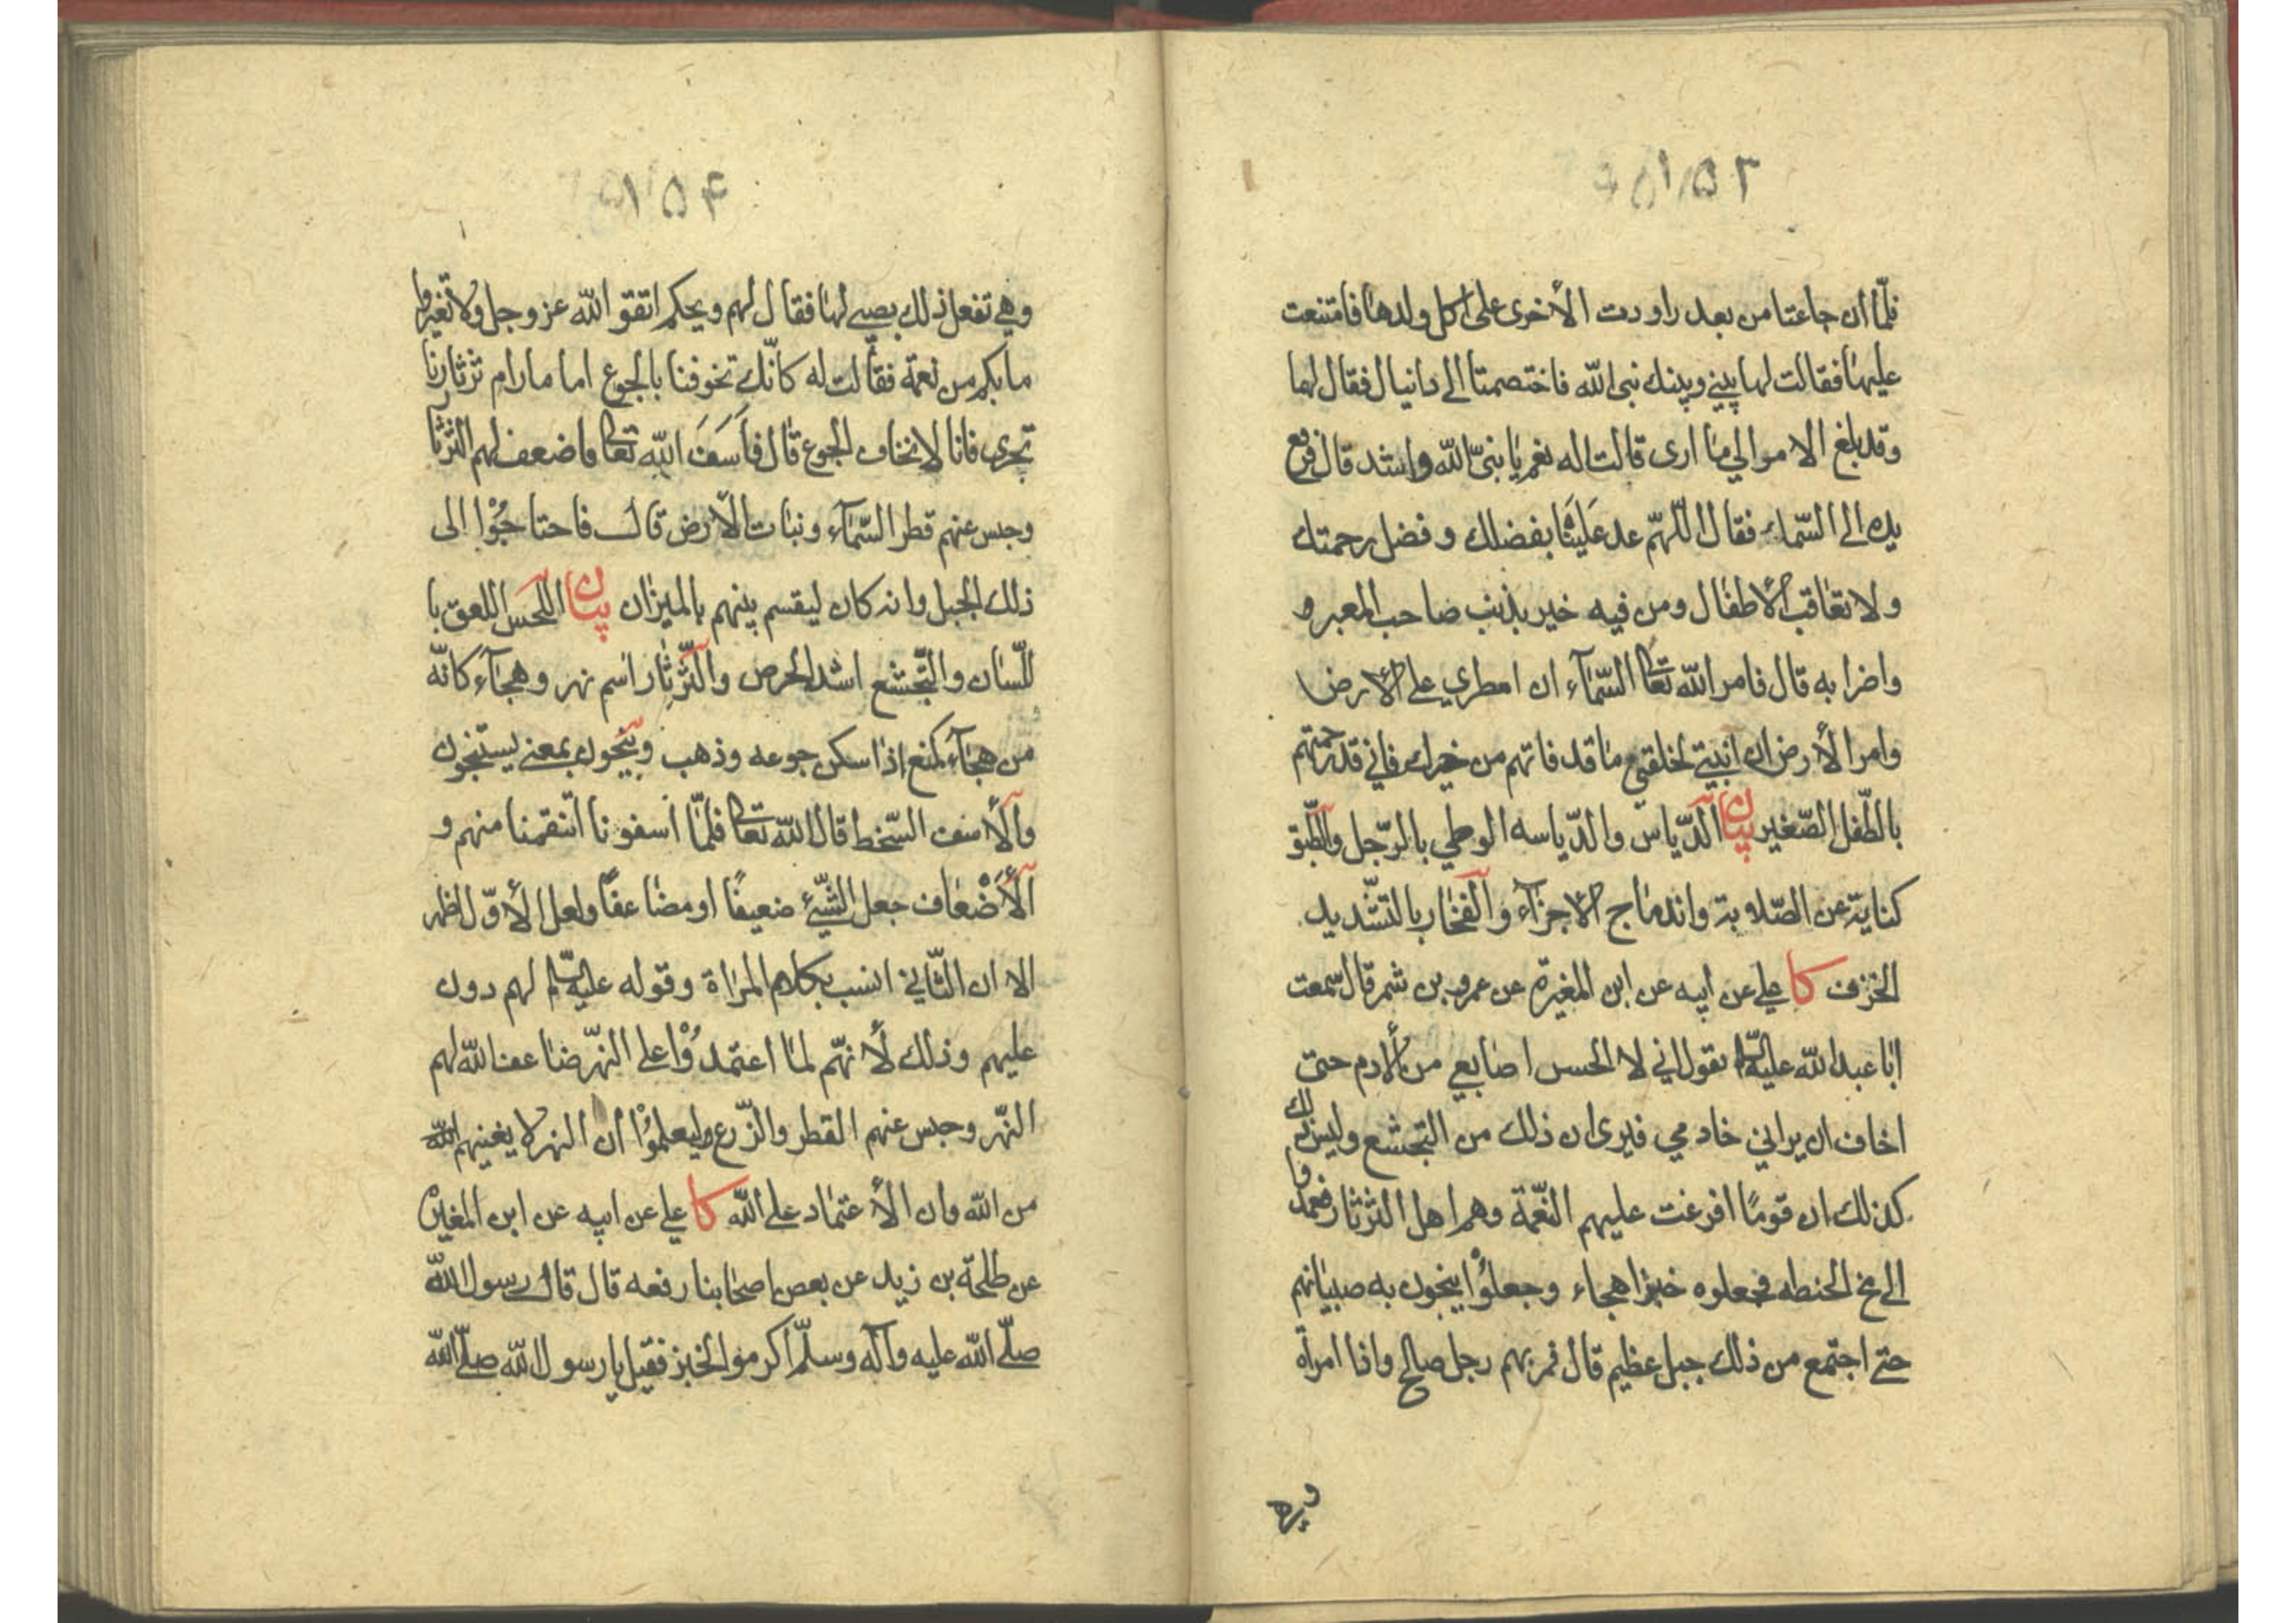 فلمّا ان جاعتا من بعد راودت الأخرى على اكل ولدها فامتنعت
عليها فقالت لها بيني وبينك نبى الله فاختصمتا الى دانيال فقال لهما
وقد بلغ الامر الي ما ارى قالت له نعم يا نبىّ الله واشد قال فرفع
يده الى السّماء فقال اللّهمّ عد علينا بفضلك و فضل رحمتك
ولا تعاقب الأطفال ومن فيه خير بذنب صاحب المعبر و
واضرابه قال فامر الله تعالى السّمآء ان امطري على الأرض
وامر الأرض ان انبتي لخلقي ما قد فاتهم من خيرك فاني قد رحمتهم
بالطّفل الصّغير بيان الدّياس والدّياسه الوطي بالرّجل والطّبق
كناية عن الصّلابة واندماج الأجزآء والفخّار بالتشديد
الخزف كا علي عن ابيه عن ابن المغيرة عن عمرو بن شمر قال سمعت
ابا عبد الله عليه السلام يقول اني لالحس اصابعي من الأدم حتى
اخاف ان يراني خادمي فيرى ان ذلك من التجشع وليس ذلك
كذلك ان قومًا افرغت عليهم النّعمة وهم اهل الثرثار فعمدوا
الى مخ الحنطه فجعلوه خبزا هجاء وجعلوا ينجون به صبيانهم
حتى اجتمع من ذلك جبل عظيم قال فمر بهم رجل صالح واذا امرأة
وهي
وهي تفعل ذلك بصبي لها فقال لهم ويحكم اتقوا الله عز وجل ولا تغيروا
ما بكم من نعمة فقالت له كانّك تخوفنا بالجوع اما مادام ثرثارنا
تجرى فانا لا نخاف الجوع قال فأسف الله تعالى فاضعف لهم الثرثا
وحبس عنهم قطر السّمآء ونبات الأرض قال فاحتاجوا الى
ذلك الجبل وانه كان ليقسم بينهم بالميزان بيان اللحس اللعق با
للّسان والتّجشع اشد الحرص والثّرثار اسم نهر وهجآء كانّه
من هجآء كمنع اذا سكن جوعه وذهب وينجون بمعنى يستنجون
والأسف السّخط قال الله تعالى فلمّا اسفونا انتقمنا منهم و
الأضعاف جعل الشّيئ ضعيفًا او مضاعفًا ولعل الأوّل اظهر
الا ان الثّاني انسب بكلام المراة وقوله عليه السلام لهم دون
عليهم وذلك لأنهّم لما اعتمدوا على النهّر ضاعف الله لهم
النهّر وحبس عنهم القطر والزّرع وليعلموا ان النهر لا يغنيهم
من الله وان الأعتماد على الله كا علي عن ابيه عن ابن المغيرة
عن طلحة بن زيد عن بعض اصحابنا رفعه قال قال رسول الله
صلّى الله عليه وآله وسلّم اكرموا الخبز فقيل يا رسول الله صلّى الله